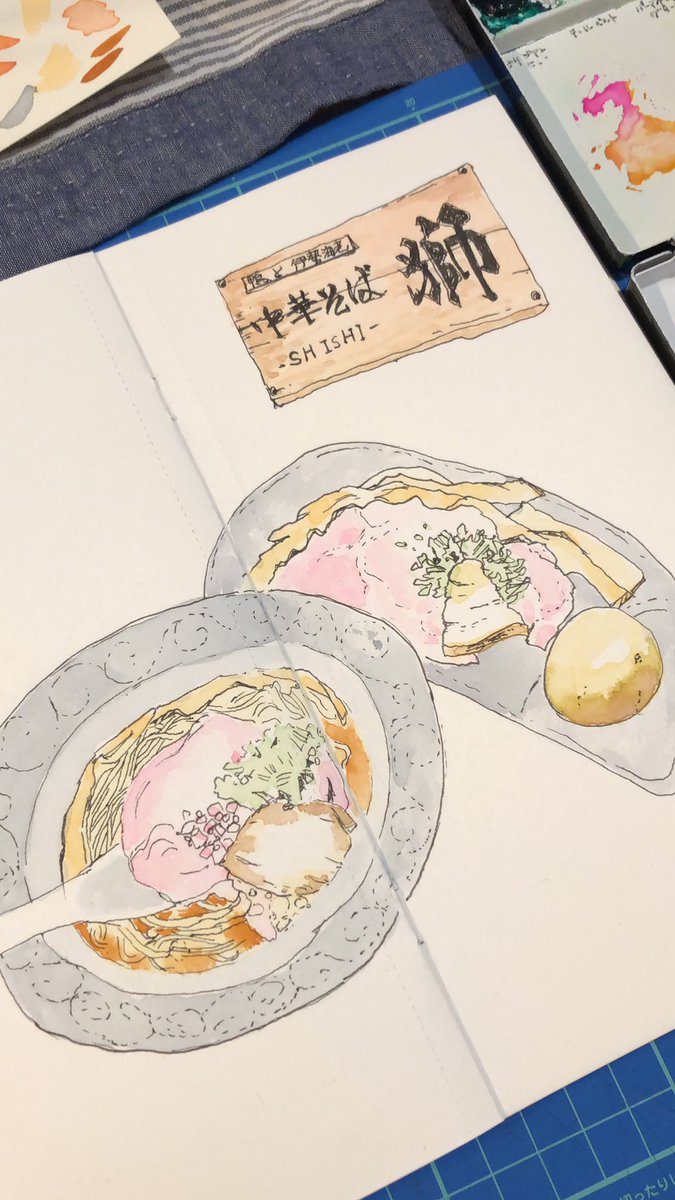 と 伊勢海老
中華そば
-SHISHI-
獅
20